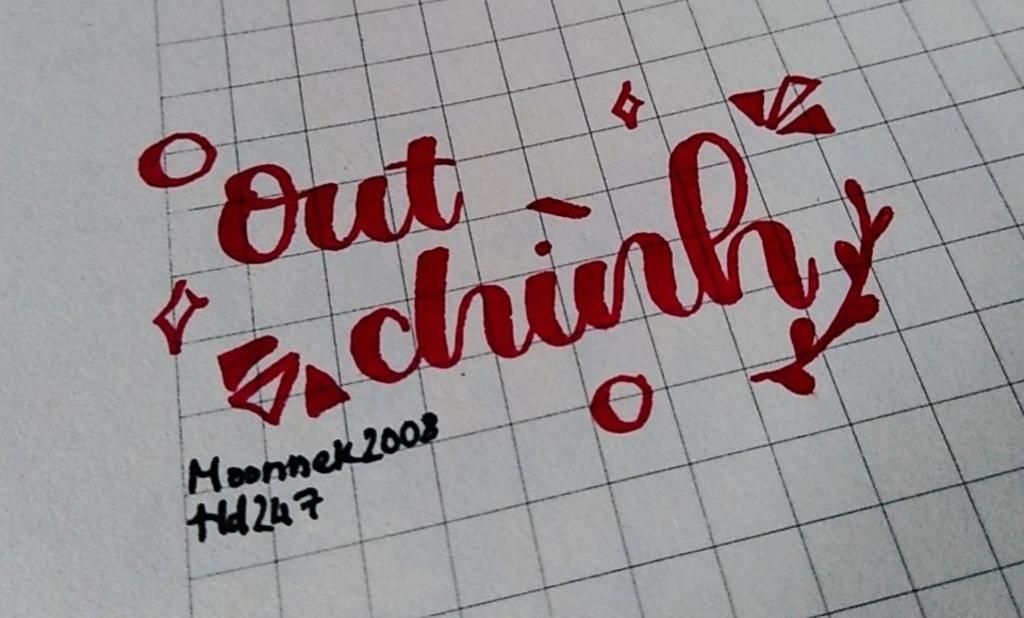 out
chình
Moonnek2008
Hd247